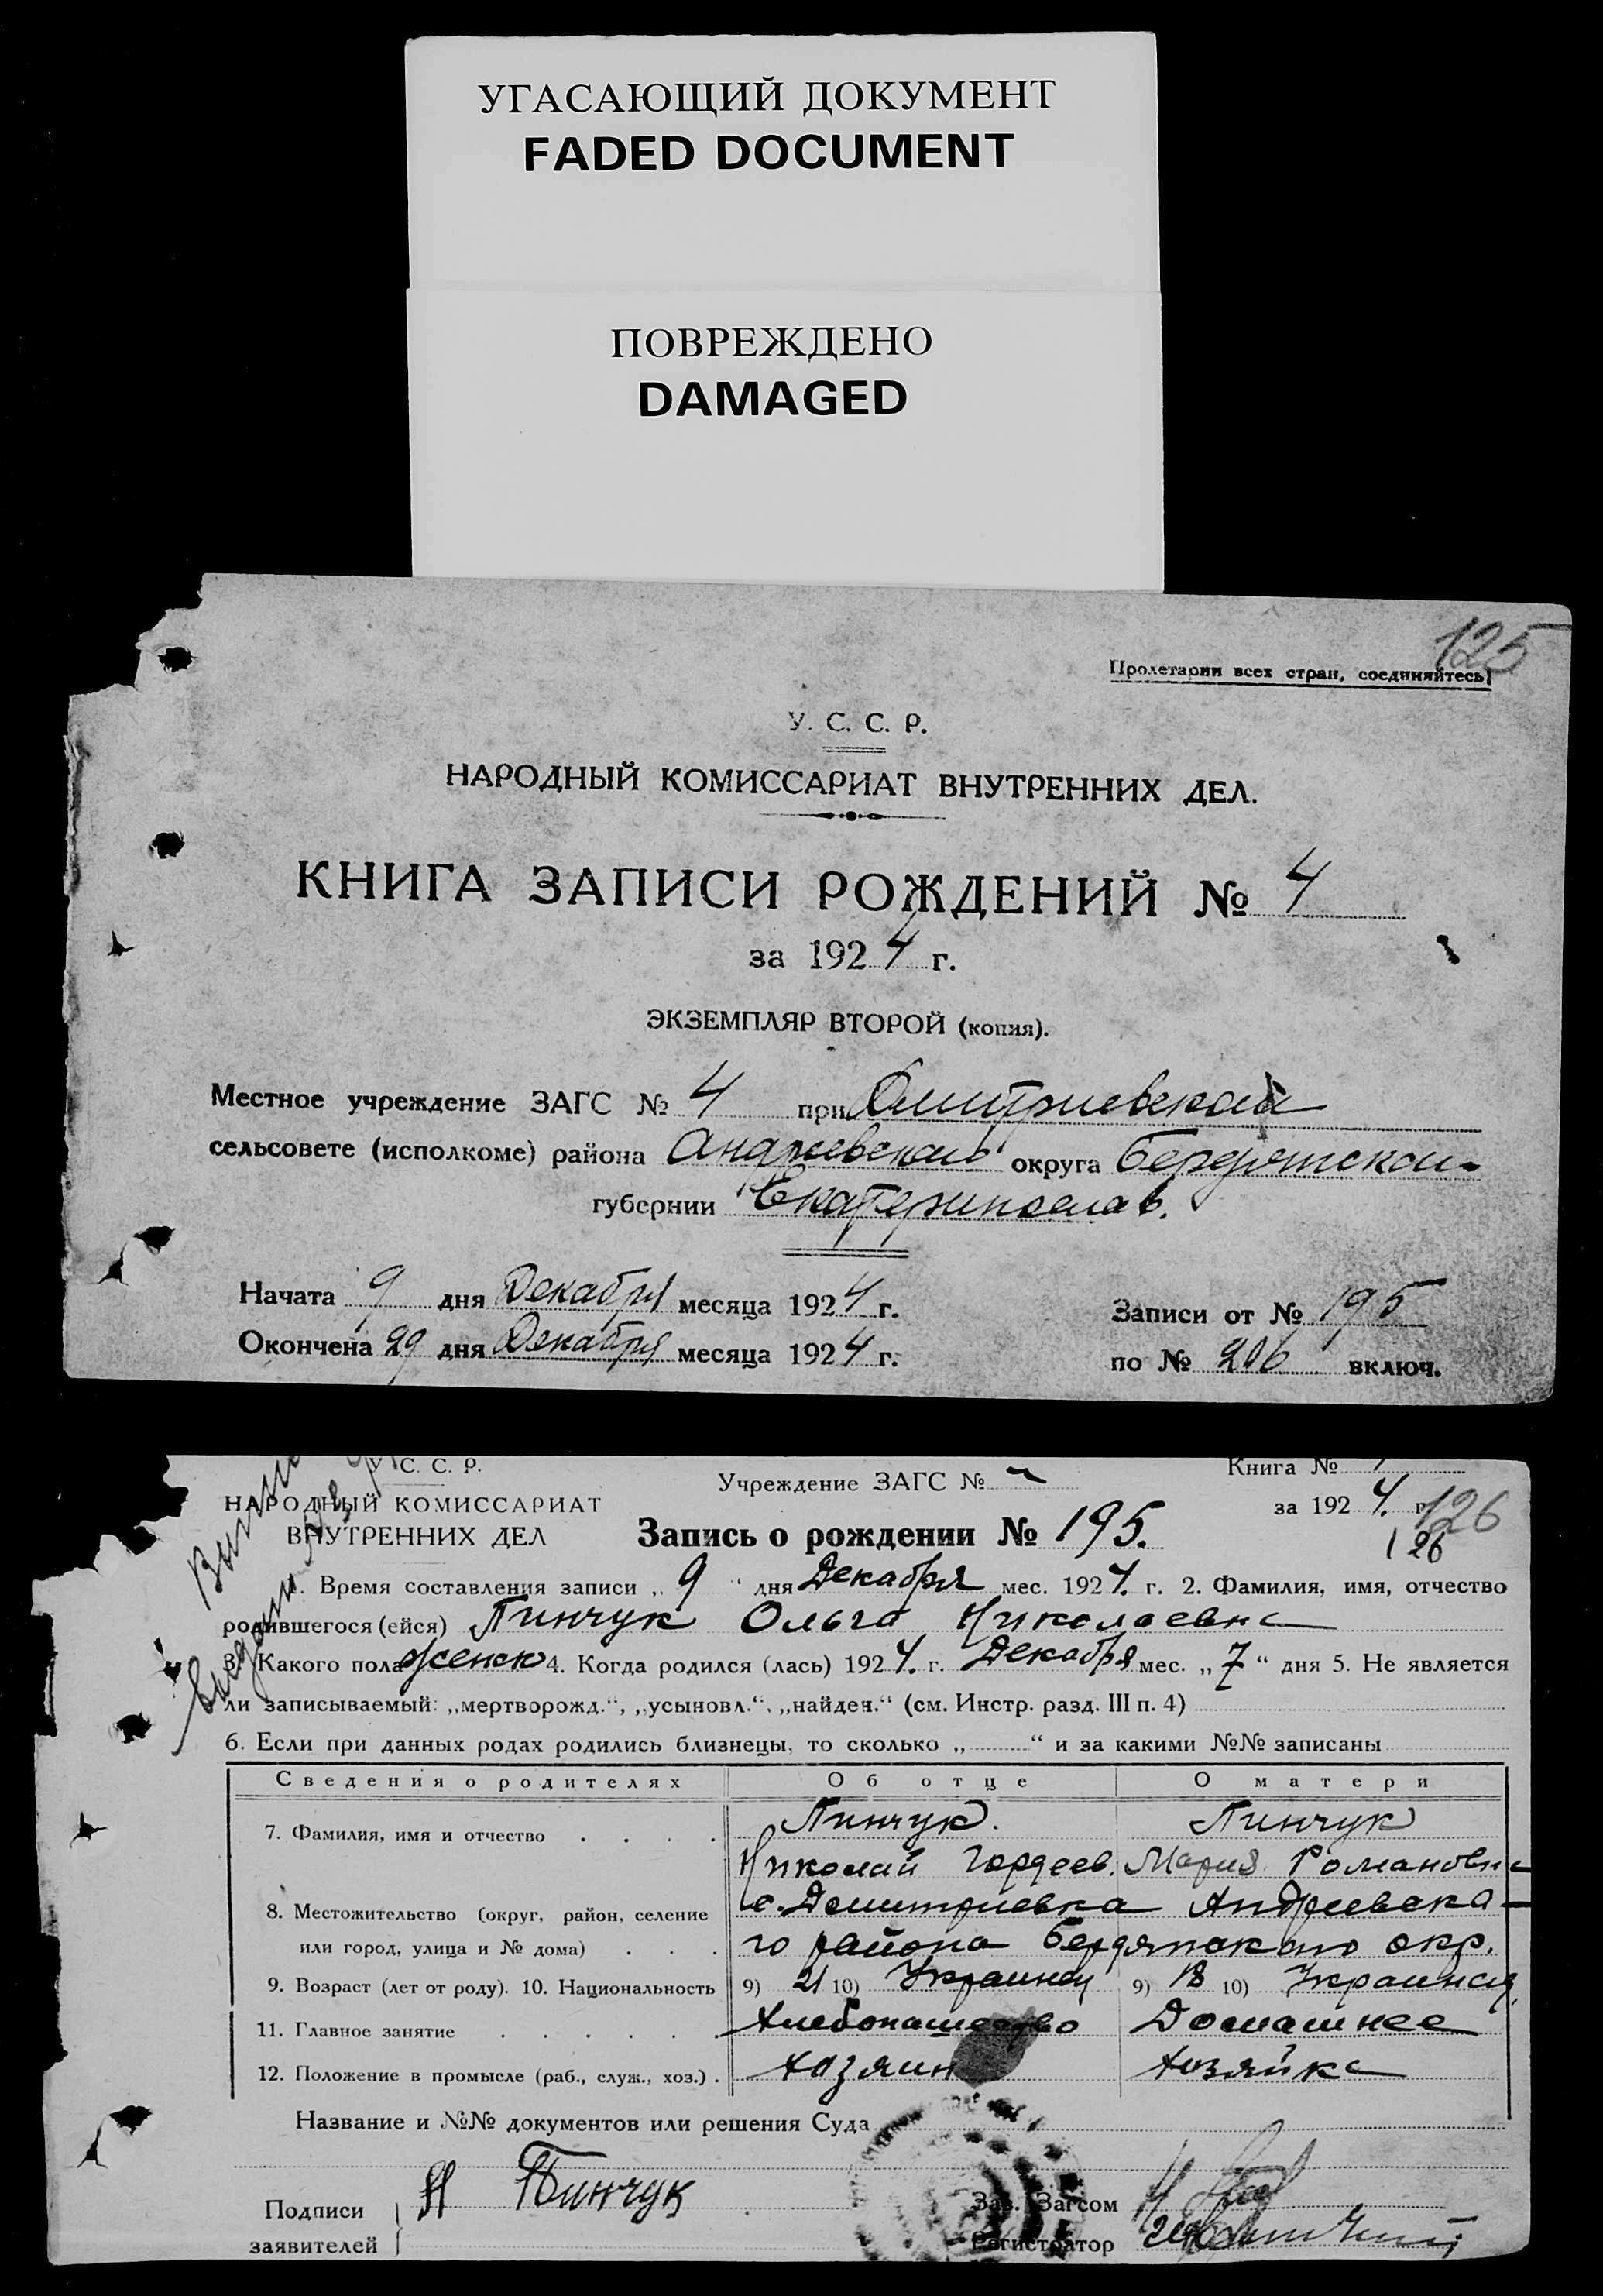 УГАСАЮЩИЙ ДОКУМЕНТ
FADED DOCUMENT
ПОВРЕЖДЕНО
DAMAGED
125
Пролетарии всех стран, соединяйтесь!
У. С. С. Р.
НАРОДНЫЙ КОМИССАРИАТ ВНУТРЕННИХ ДЕЛ.
КНИГА ЗАПИСИ РОЖДЕНИЙ № 4
за 1924 г.
ЭКЗЕМПЛЯР ВТОРОЙ (копия).
Местное учреждение ЗАГС № 4 при Дмитриевской
сельсовете (исполкоме) района Андреевской округа Бердянской
губернии Екатеринослав.
Начата 9 дня Декабря месяца 1924 г. Записи от № 195
Окончена 29 дня Декабря месяца 1924 г. по № 206 включ.
У. С. С. Р. Учреждение ЗАГС № Книга №
НАРОДНЫЙ КОМИССАРИАТ за 1924. г. 126
ВНУТРЕННИХ ДЕЛ Запись о рождении № 195. 126
1. Время составления записи „ 9 “ дня Декабря мес. 1924. г. 2. Фамилия, имя, отчество
родившегося (ейся) Пинчук Ольга Николаевна
3. Какого пола женск 4. Когда родился (лась) 1924. г. Декабря мес. „ 7 “ дня 5. Не является
ли записываемый: „мертворожд.“, „усыновл.“, „найден.“ (см. Инстр. разд. III п. 4)
6. Если при данных родах родились близнецы, то сколько „ “ и за какими №№ записаны
Сведения о родителях Об отце О матери
7. Фамилия, имя и отчество Пинчук. Пинчук
Николай Гордеев. Мария Романовна
8. Местожительство (округ, район, селение с. Дмитриевка Андреевска-
или город, улица и № дома) го района Бердянского окр.
9. Возраст (лет от роду). 10. Национальность 9) 21 10) Украинец 9) 18 10) Украинка
11. Главное занятие Хлебопашество Домашнее
12. Положение в промысле (раб., служ., хоз.) Хозяин Хозяйка
Название и №№ документов или решения Суда
Подписи Н Пинчук Зав. Загсом
заявителей Регистратор